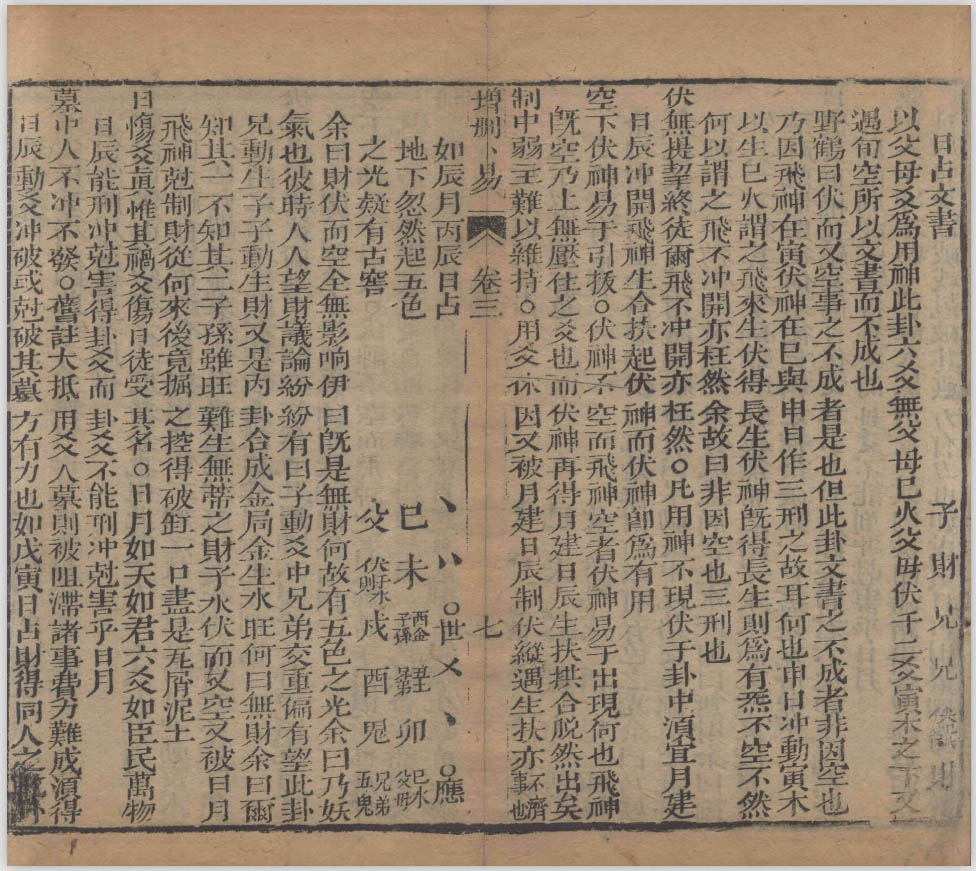 日占文書　子財兄兄　財
以父母爻爲用神此卦六爻無父母巳火父母伏于二爻寅木之下又
遇旬空所以文書而不成也
野鶴曰伏而又空事之不成者是也但此卦文書之不成者非因空也
乃因飛神在寅伏神在巳與申日作三刑之故耳何也申日冲動寅木
以生巳火謂之飛來生伏得長生伏神旣得長生則爲有炁不空不然
何以謂之飛不冲開亦枉然余故曰非因空也三刑也
伏無提挈終徒爾飛不冲開亦枉然○凡用神不現伏于卦中湏宜月建
日辰冲開飛神生合拱起伏神而伏神卽爲有用
空下伏神易于引拔○伏神不空而飛神空者伏神易于出現何也飛神
旣空乃上無壓住之爻也而伏神再得月建日辰生扶拱合脱然出矣
制中弱主難以維持○用爻休囚又被月建日辰制伏縱遇生扶亦事不濟也
增刪卜易　卷三　七
如辰月丙辰日占　、〃○世乂、○應
地下忽然起五色　巳未 酉金子孫 丑兄弟 卯 巳火父母
之光疑有古窖○　父 伏子水財 戌酉鬼 兄弟五鬼
余曰財伏而空全無影响伊曰旣是無財何故有五色之光余曰乃妖
氣也彼時人人望財議論紛紛有曰子動爻中兄弟交重偏有望此卦
兄動生子子動生財又是内卦合成金局金生水旺何曰無財余曰爾
知其一不知其二子孫雖旺難生無蒂之財子水伏而又空又被日月
飛神尅制財從何來後竟掘之控得破缸一口盡是瓦屑泥土
日傷爻眞惟其禍爻傷日徒受其名○日月如天如君六爻如臣民萬物
日辰能刑冲尅害得卦爻而卦爻不能刑冲尅害乎日月
墓中人不冲不發○舊註大抵用爻入墓則被阻滯諸事費力難成湏得
日辰動爻冲破或尅破其墓方有力也如戊寅日占財得同人之